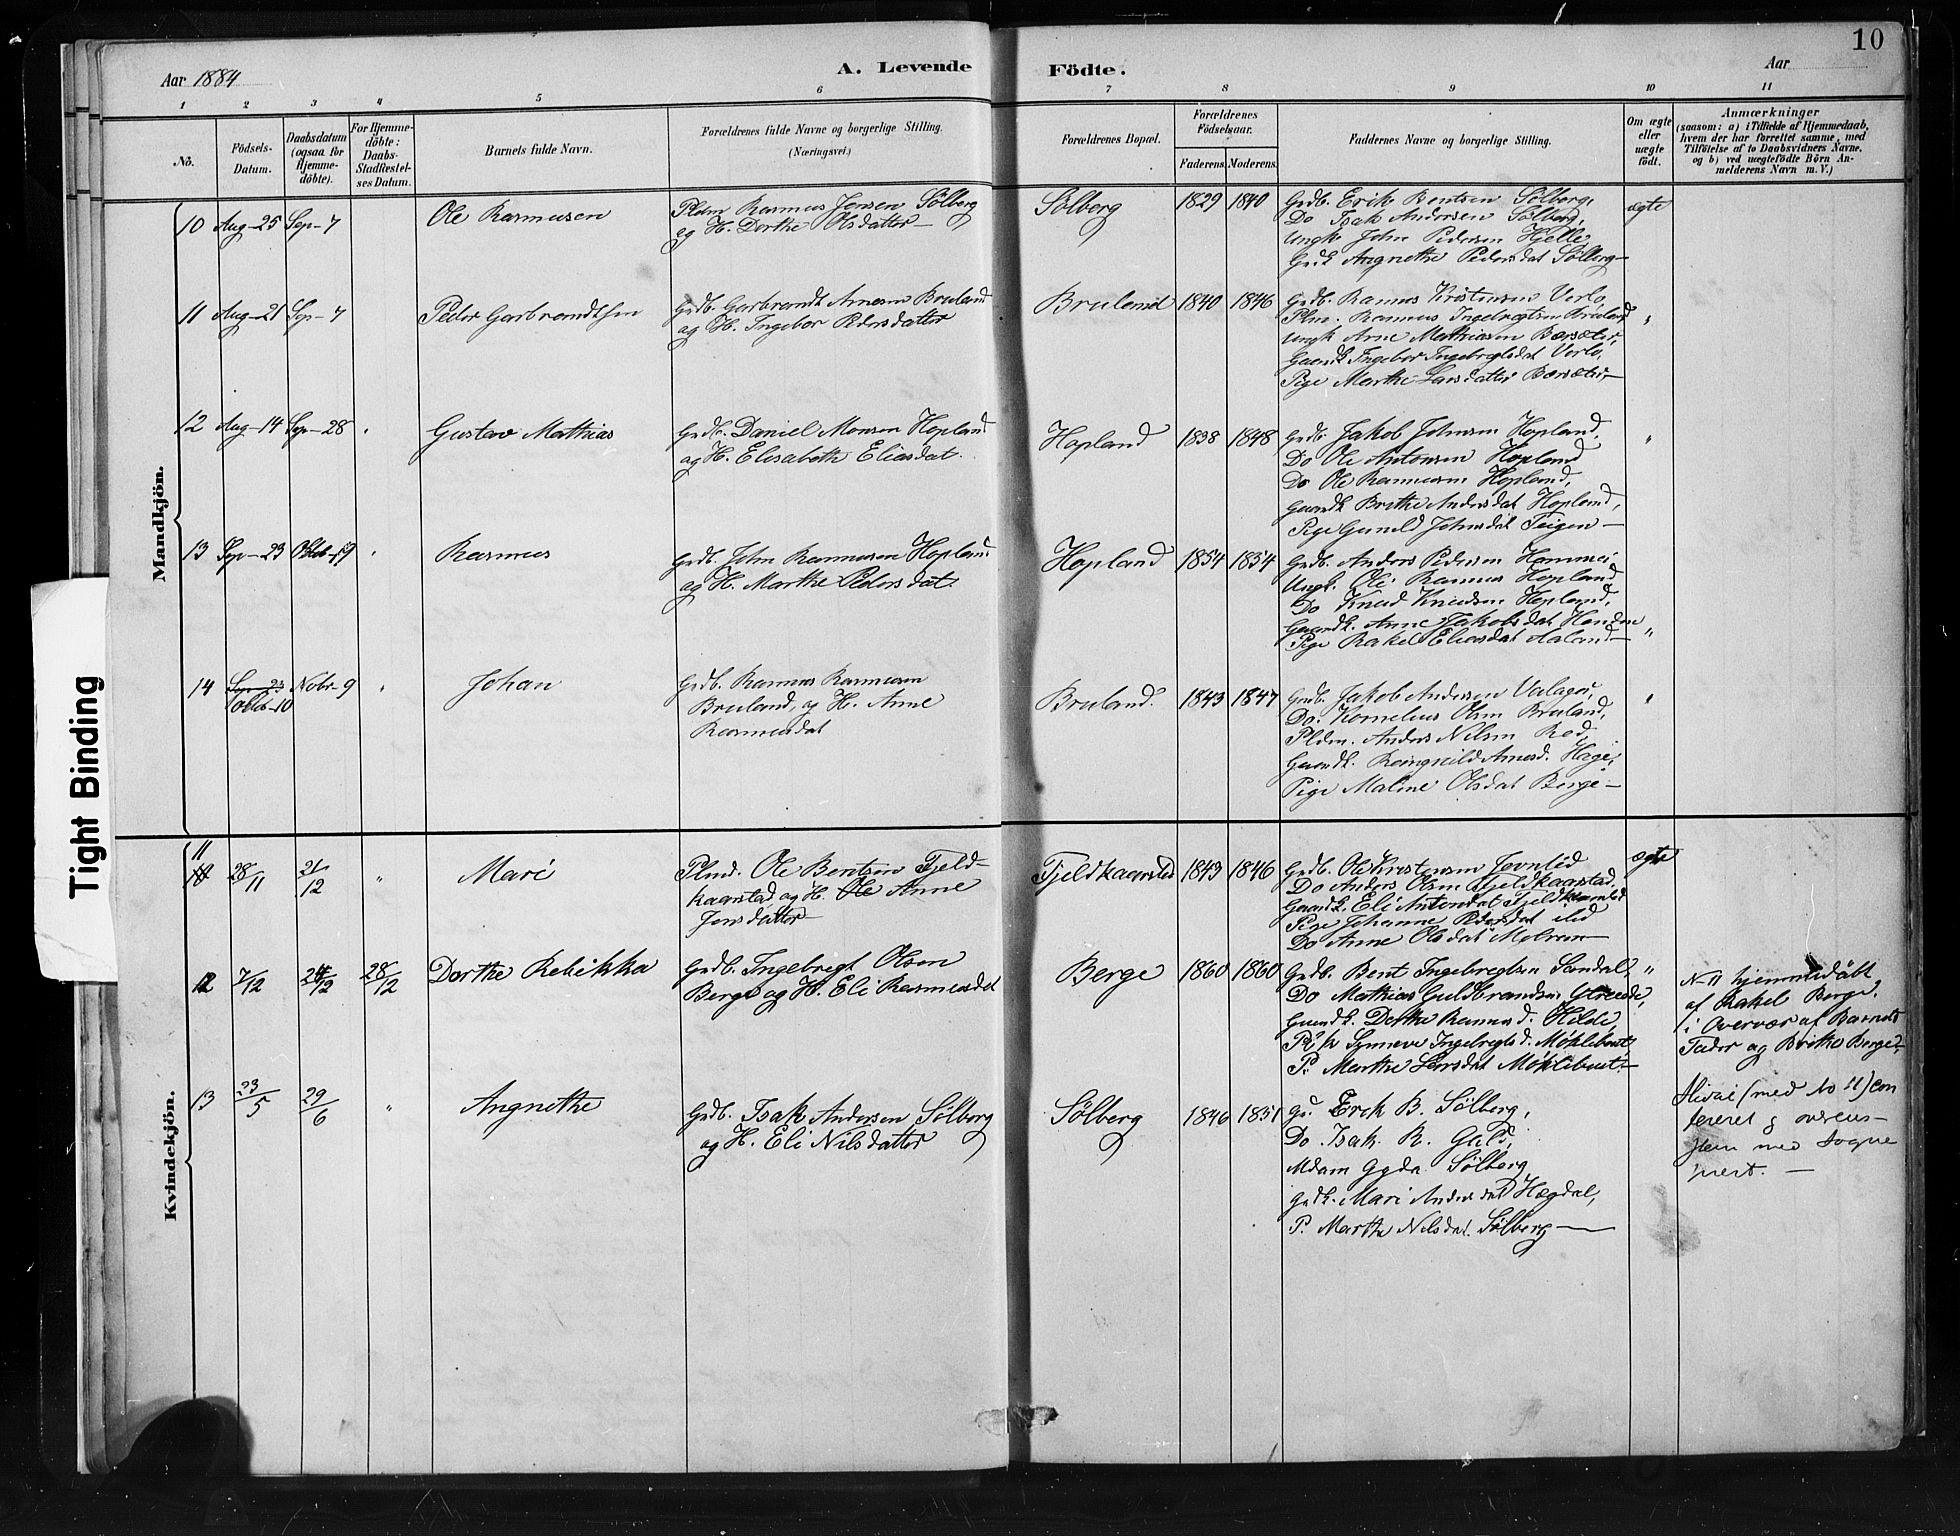 10
Aar 1884
A. Levende Födte.
Aar
1 2 3 4 5 6 7 8 9 10 11
No.
Födsels-
Datum.
Daabsdatum
(ogsaa for
Hjemme-
döbte).
For Hjemme-
döbte:
Daabs-
Stadfæstel-
ses Datum.
Barnets fulde Navn.
Forældrenes fulde Navne og borgerlige Stilling.
(Næringsvei.)
Forældrenes Bopæl.
Forældrenes
Födselsaar.
Faderens. Moderens.
Faddernes Navne og borgerlige Stilling.
Om ægte
eller
uægte
födt.
Anmærkninger
(saasom: a) i Tilfælde af Hjemmedaab,
hvem der har forrettet samme, med
Tilföielse af to Daabsvidners Navne.
og b) ved uægtefödte Börn An-
melderens Navn m. V.)
Mandkjön.
10 Aug-25 Sep-7
Ole Rasmusen
Pldm Rasmus Jensen Sölberg
og H. Dorthe Olsdatter-
Sölberg 1829 1840
Grdb. Erik Bentsen Sölberg,
Do Isak Andersen Sölberg,
Ungk John Pedersen Hjelle
Grdk Angnethe Pedersdat Sölberg-
ægte
11 Aug-21 Sep-7
Peder Garbrandtsen
Grdb. Garbrandt Arnesen Bruland
og H. Ingebor Pedersdatter
Bruland 1840 1846
Grdb. Rasmus Kristensen Verlo,
Plm. Rasmus Ingebregtsen Bruland
Ungk Arne Mathiasen Bærsæter,
Gaardk Ingebor Ingebregtsdat Verlo,
Pige Marthe Larsdatter Bærsæter-
"
12 Aug-14 Sep-28
Gustav Mathias
Grdb. Daniel Monsen Hopland
og H. Elisabeth Eliasdat.
Hopland 1838 1848
Grdb. Jakob Johnsen Hopland,
Do Ole Antonsen Hopland
Do Ole Rasmusen Hopland,
Gaardk Brithe Andersdat Hopland,
Pige Gunild Johnsdat Teigen-
"
13 Sep-23 Oktb-19
Rasmus
Grdb. John Rasmusen Hopland
og H. Marthe Pedersdat.
Hopland 1854 1854
Grdb. Anders Pedersen Hammer
Ungk. Ole Rasmus Hopland
Do Knud Knudsen Hopland,
Gaardk. Anne Jakobsdat Henden
Pige Rakel Eliasdat Aaland-
"
14 Sep-23
Oktb-10 Nobr-9
Johan
Grdb. Rasmus Rasmusen
Bruland, og H. Anne
Rasmusdat
Bruland. 1843 1847
Grdb. Jakob Andersen Valager,
Do. Kornelius Olsen Bruland,
Pldm. Anders Nilsen Rød,
Gaardk. Rangnild Arnesd. Hage,
Pige Maline Olsdat Berge-
"
Kvindekjön.
11
28/11 21/12 "
Mari
Plmd. Ole Bentsen Fjeld-
kaarstad, og H. Ole Anne
Jensdatter-
Fjeldkaarstad 1843 1846
Grdb. Ole Kristensen
Do Anders Olsen Fjeldkaarstad,
Gaardk. Eli Antondat Fjeldkaarstad
Pige Johanne Pedersdat
Do Anne Olsdat
ægte
12 7/12 24/12 28/12
Dorthe Rebikka
Grdb. Ingebregt Olsen
Berge og H. Eli Rasmusdat
Berge 1860 1860
Grdb. Bent Ingebregtsen Sandal,
Do Mathias Guldbrandsen Ytreeide,
Gaardk. Dorthe Rasmusd. Hilde,
Synneve Ingebregtsd. Møklebust,
P. Marthe Larsdat Møklebust-
"
N-11 hjemmedöbt
af Rakel Berge,
i Overvær af Barnets
Fader og Brithe Berge,
13 23/5 29/6 "
Angnethe
Grdb. Isak Andersen Sölberg
og H. Eli Nilsdatter
Sölberg 1846 1851
Gd. Erik B. Sölberg,
Do Isak R. Guld,
Mdam Gyda Sölberg,
Grdk. Mari Andersdat Hægdal,
P. Marthe Nilsdat. Sölberg-
(med No 11)
Tight Binding